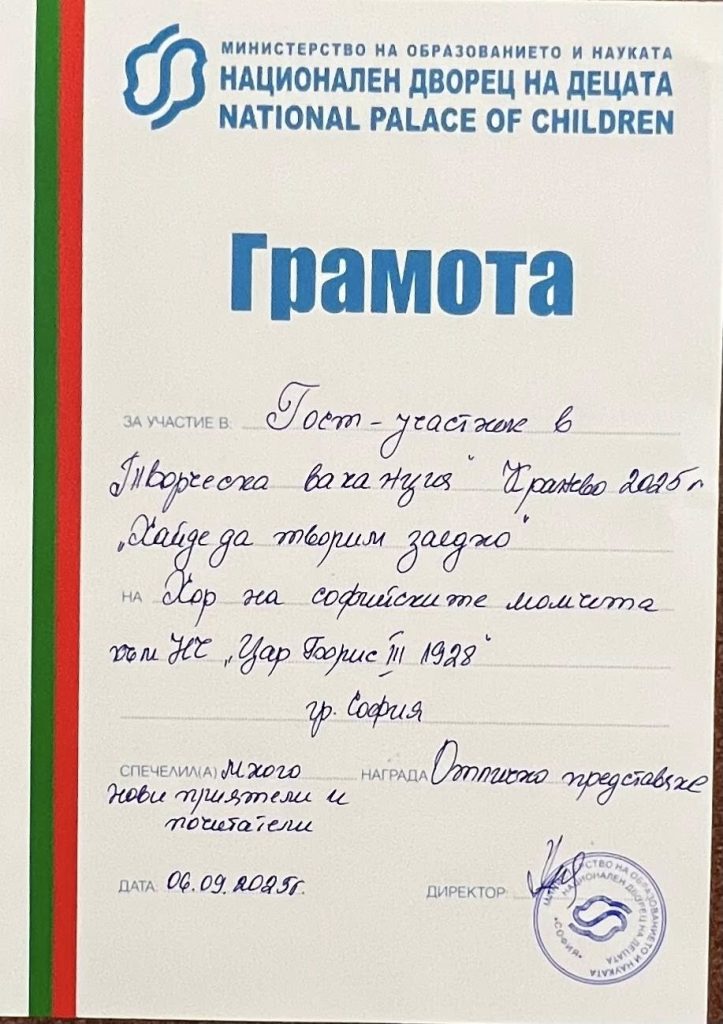 МИНИСТЕРСТВО НА ОБРАЗОВАНИЕТО И НАУКАТА
НАЦИОНАЛЕН ДВОРЕЦ НА ДЕЦАТА
NATIONAL PALACE OF CHILDREN
Грамота
ЗА УЧАСТИЕ В: Гост - участник в
"Творческа ваканция" Кранево 2025г
„Хайде да творим заедно"
НА Хор на софийските момчета
към НЧ „Цар Борис III 1928"
гр. София
СПЕЧЕЛИЛ(А) много НАГРАДА Отлично представяне
нови приятели и
почитатели
ДАТА: 06.09.2025г. ДИРЕКТОР:
МИНИСТЕРСТВО НА ОБРАЗОВАНИЕТО И НАУКАТА
НАЦИОНАЛЕН ДВОРЕЦ НА ДЕЦАТА
*СОФИЯ*